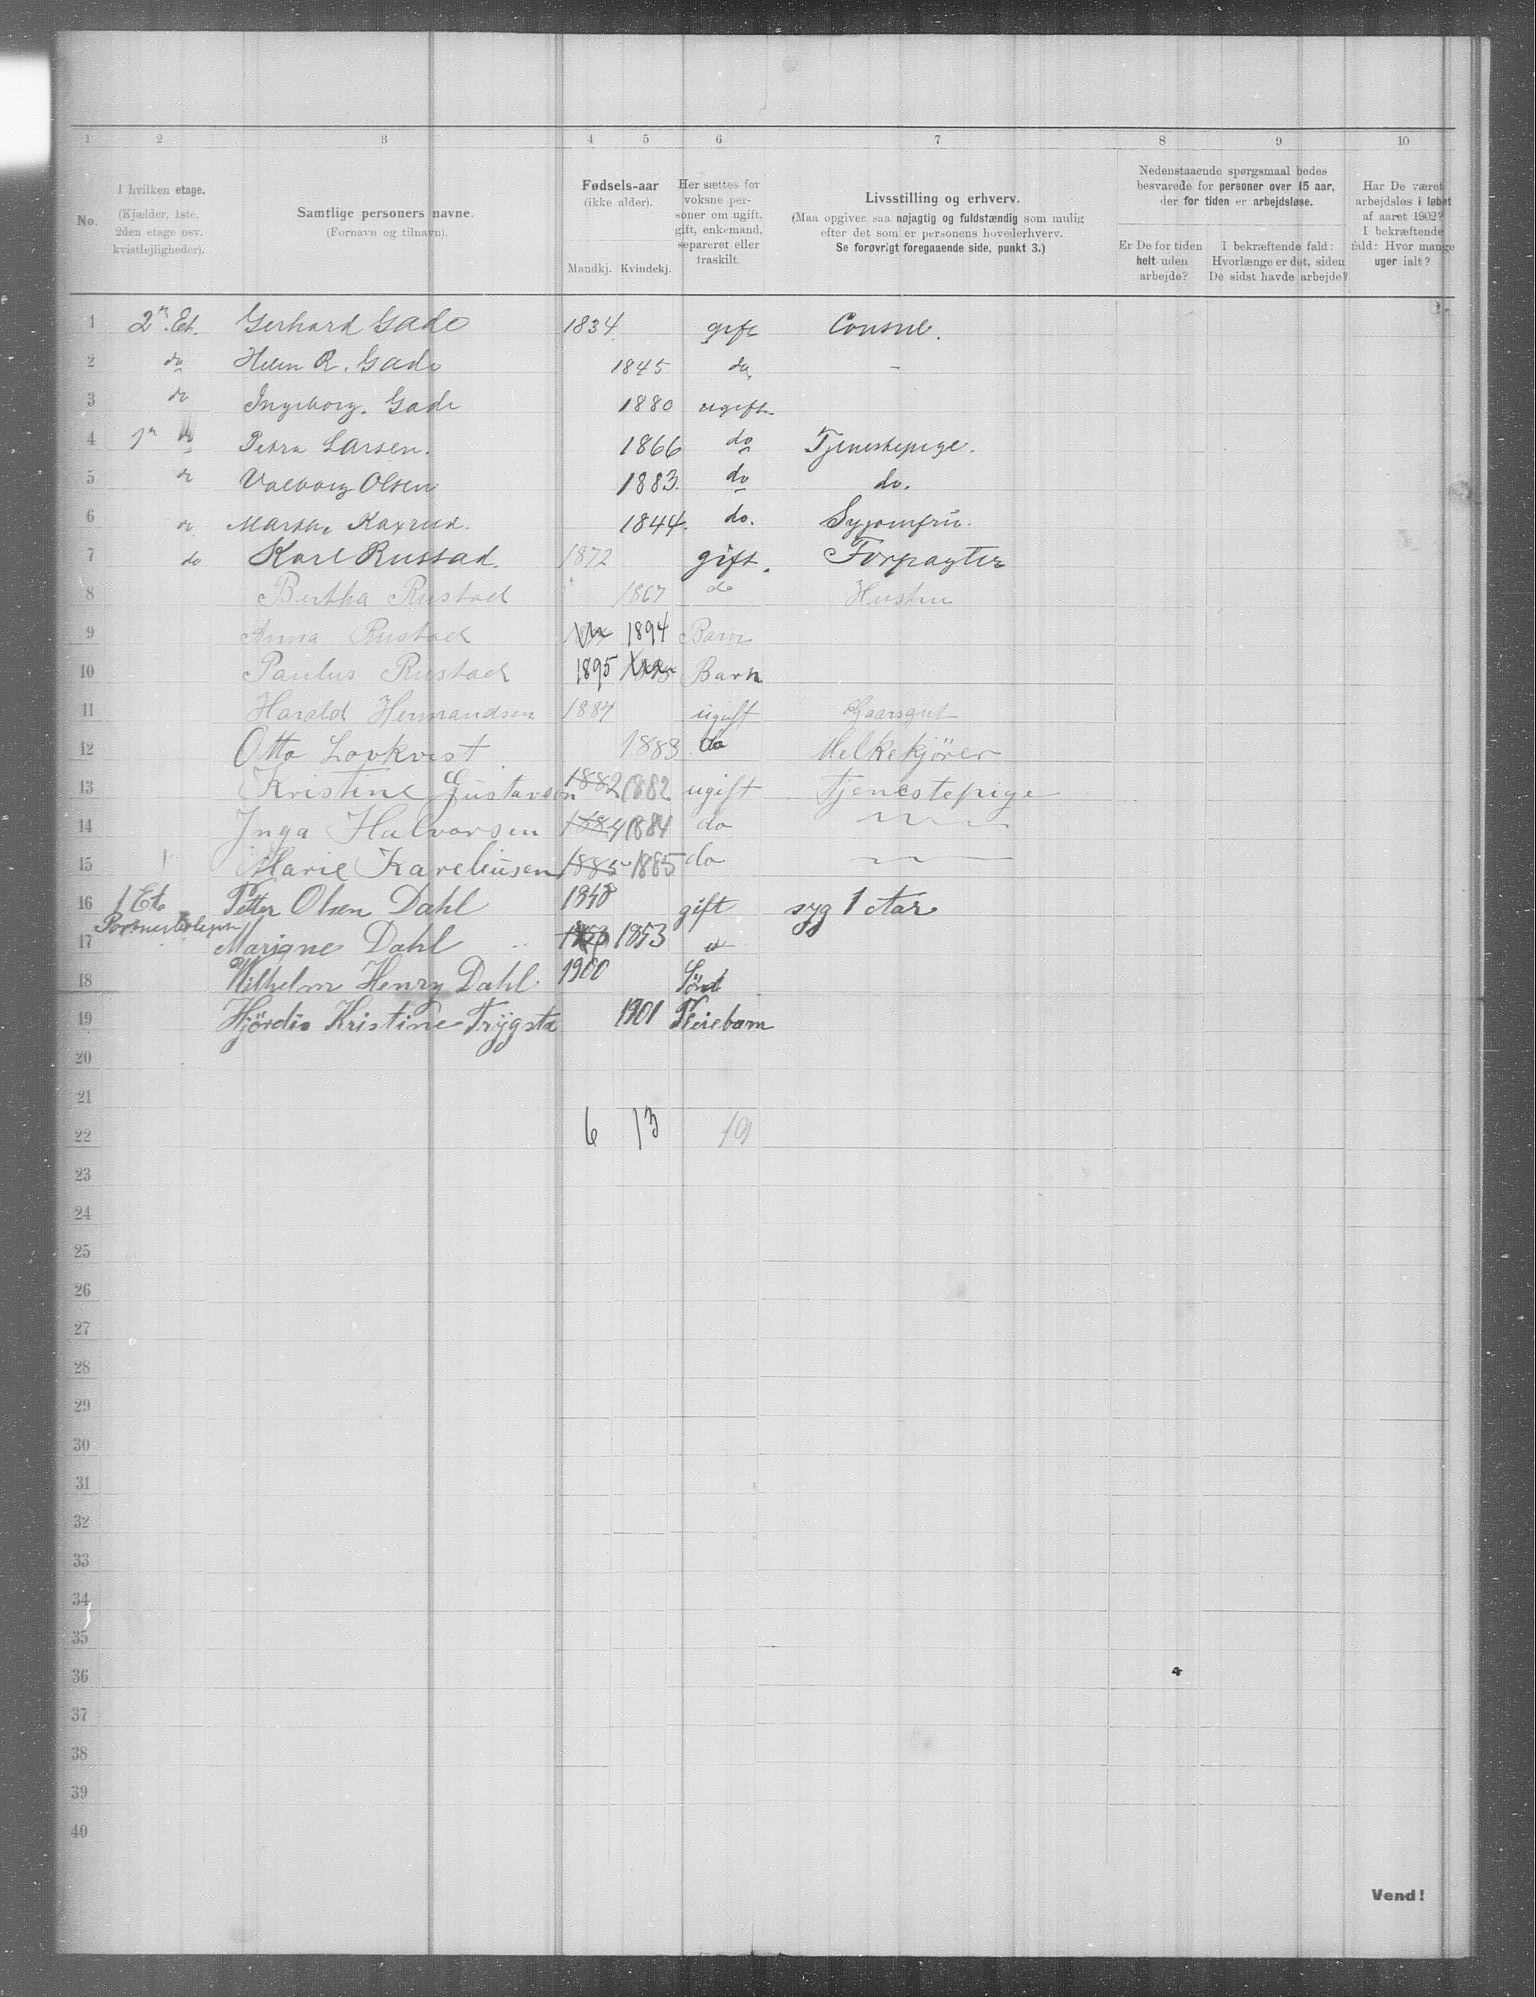 1 2 3 4 5 6 7 8 9 10
No.
I hvilken etage.
(Kjælder, 1ste,
2den etage osv.
kvistlejligheder).
Samtlige personers navne.
(Fornavn og tilnavn).
Fødsels-aar
(ikke alder).
Mandkj. Kvindekj.
Her sættes for
voksne per-
soner om ugift,
gift, enkemand,
separeret eller
fraskilt.
Livsstilling og erhverv.
(Maa opgives saa nøjagtig og fuldstændig som mulig
efter det som er personens hovederhverv.
Se forøvrigt foregaaende side, punkt 3.)
Nedenstaaende spørgsmaal bedes
besvarede for personer over 15 aar,
der for tiden er arbejdsløse.
Er De for tiden
helt uden
arbejde?
I bekræftende fald:
Hvorlænge er det, siden
De sidst havde arbejde?
Har De været
arbejdsløs i løbet
af aaret 1902?
I bekræftende
fald: Hvor mange
uger ialt?
1 2n. Et. Gerhard Gade 1834. gift Consul.
2 do Helen R. Gade 1845 do. -
3 do Ingeborg. Gade 1880 ugift
4 1n do Petra Larsen. 1866 do Tjenestepige.
5 do Valborg Olsen 1883. do do.
6 do. Marthe Kaxrud. 1844. do. Syjomfru.
7 do Karl Rustad. 1872 gift. Forpagter
8 Bertha Rustad 1867 do Hustru
9 Anna Rustad 1894 Barn
10 Paulus Rustad 1895 Barn
11 Harald Hermandsen 1884 ugift Gaarsgut
12 Otto Lovkvist 1883 do Melkekjører
13 Kristine Gustavson 1882 1882 ugift Tjenestepige
14 Inga Halvorsen 1884 1884 do
15 Marie Kareliusen 1885 1885 do
16 1 Et. Petter Olsen Dahl 1848 gift syg 1 Aar
17 Mariane Dahl 1853 1853 "
18 Wilhelm Henry Dahl 1900 Sön
19 Hjördis Kristine Trygsta 1901 Pleiebarn
20
21
22 6 13 19
23
24
25
26
27
28
29
30
31
32
33
34
35
36
37
38
39
40
Vend!